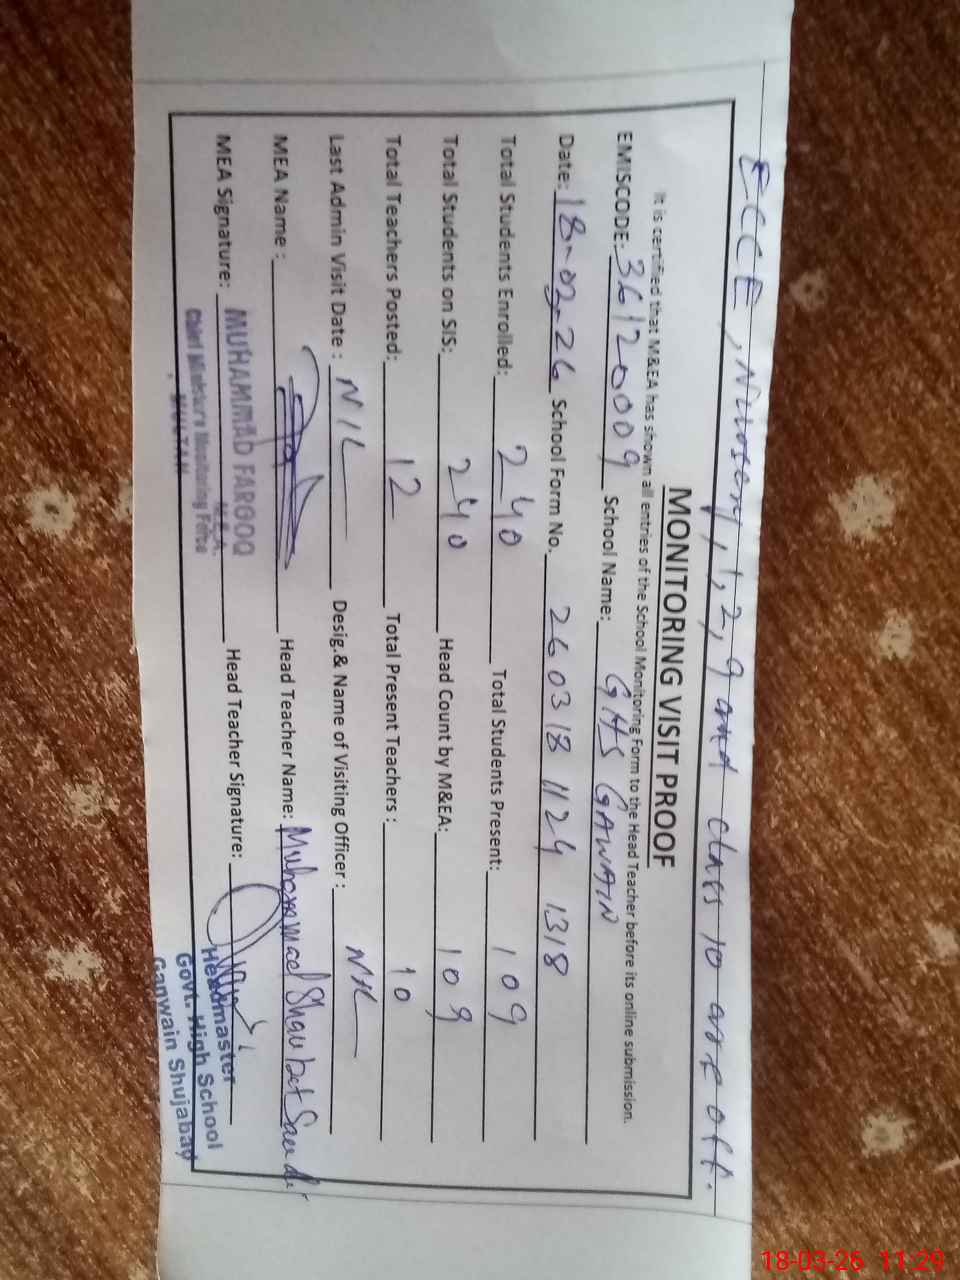 ECCE, Nursery, 1, 2, 9 and class 10 are off.
MONITORING VISIT PROOF
It is certified that M&EA has shown all entries of the School Monitoring Form to the Head Teacher before its online submission.
EMISCODE: 36120009 School Name: GHS GAWAIN
Date: 18-03-26 School Form No. 260318 1124 1318
Total Students Enrolled: 240 Total Students Present: 109
Total Students on SIS: 240 Head Count by M&EA: 109
Total Teachers Posted: 12 Total Present Teachers: 10
Last Admin Visit Date: NIL Desig.& Name of Visiting Officer: NIL
MEA Name: Head Teacher Name: Muhammad Shaukat
MEA Signature: Head Teacher Signature:
MUHAMMAD FAROOQ
M.E.A.
Chief Minister's Monitoring Force
MULTAN
Headmaster
Govt. High School
Ganwain Shujabad
18-03-26 11:29